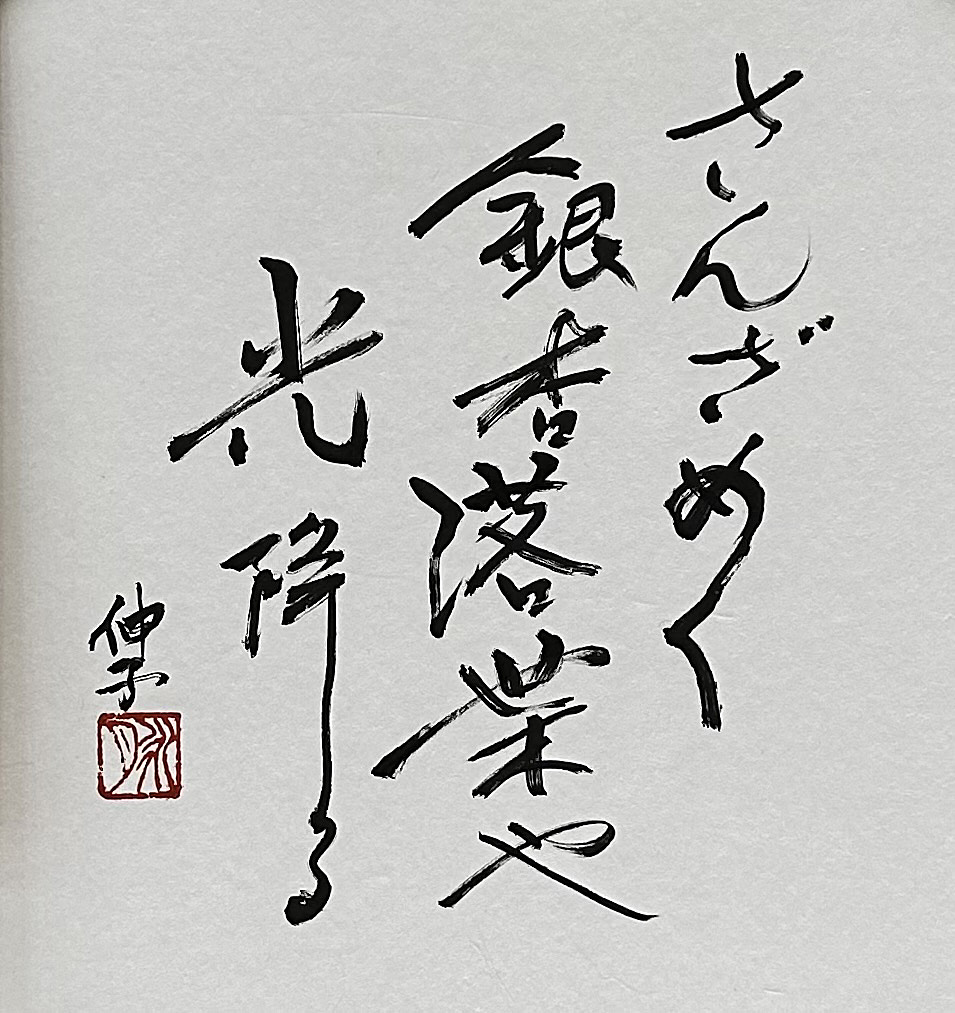 さんざめく
銀杏落葉や
光降る
伸子